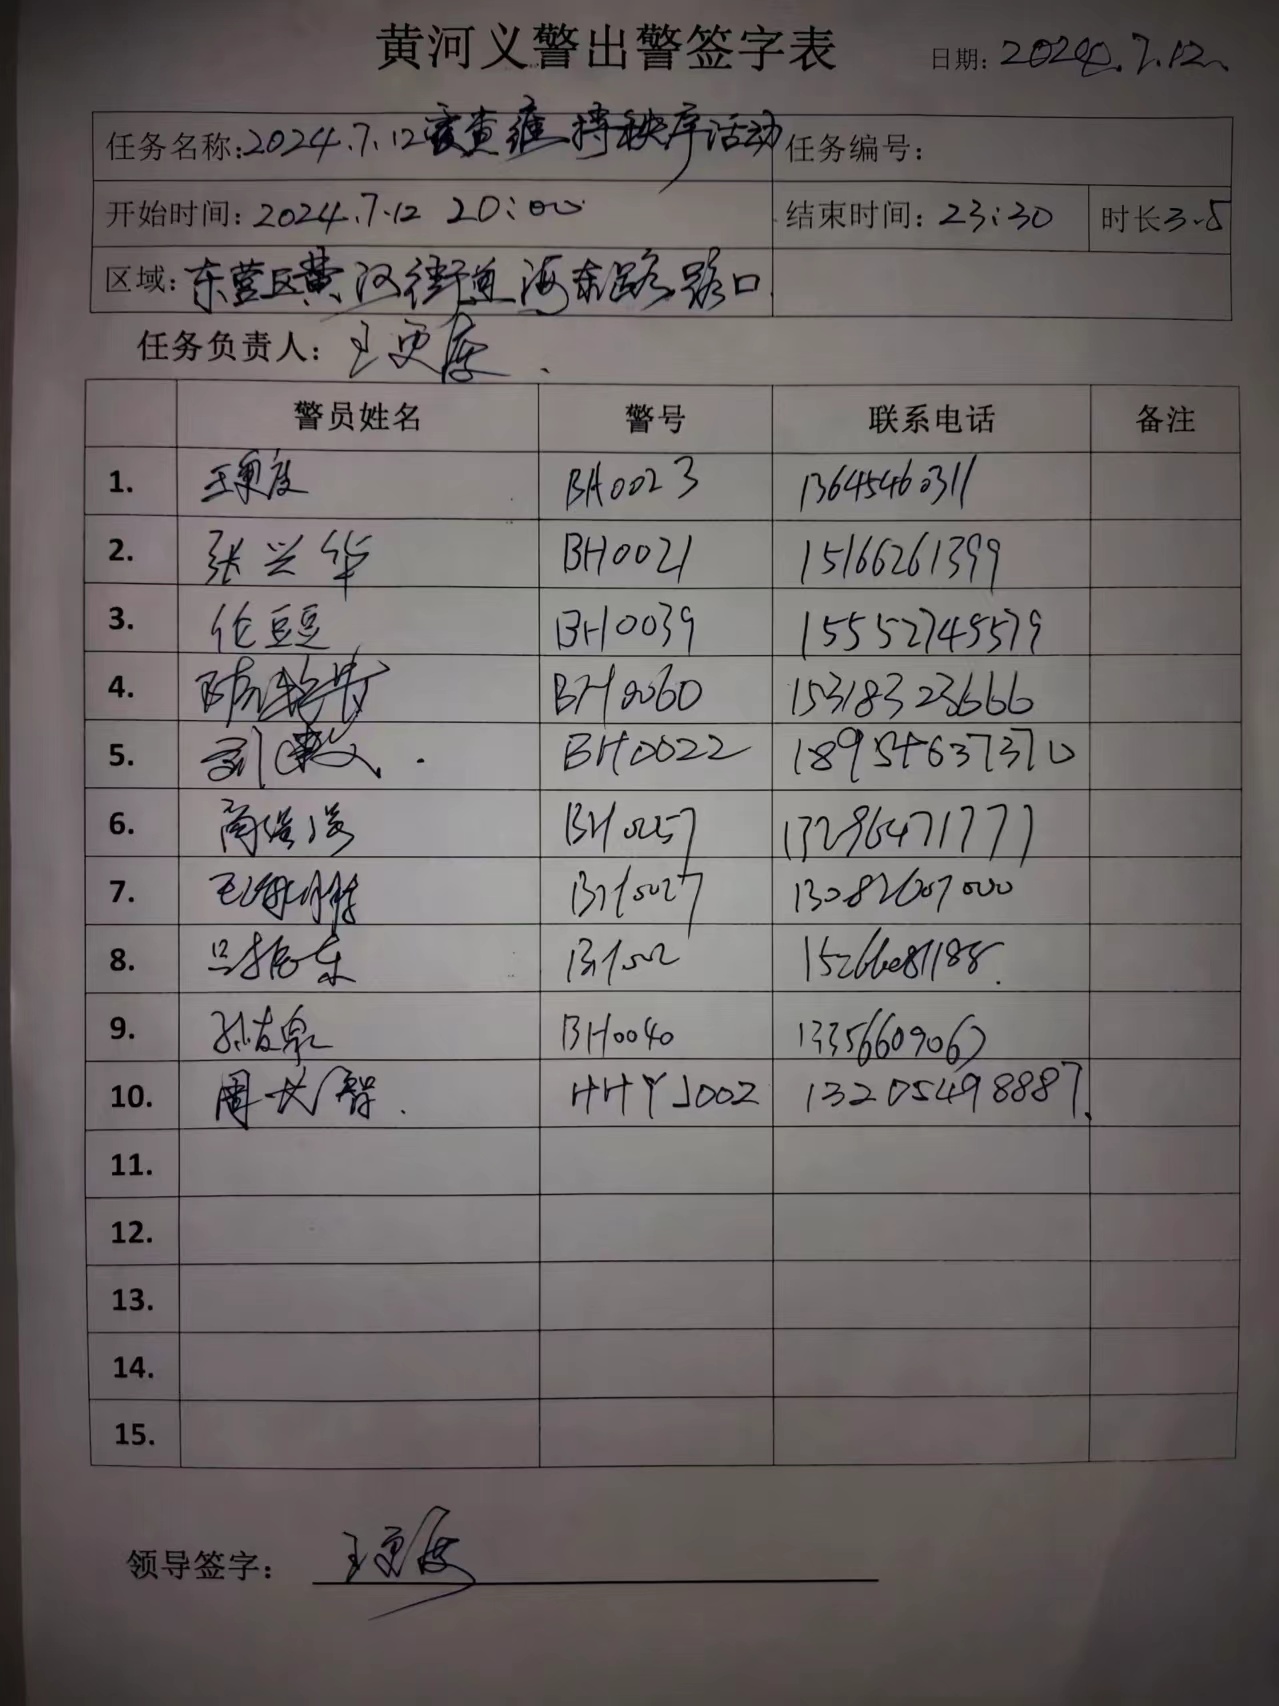 黄河义警出警签字表 日期: 2024.7.12
任务名称:2024.7.12夜查维持秩序活动 任务编号:
开始时间: 2024.7.12 20:00 结束时间: 23:30 时长3.5
区域: 东营区黄河街道海东路路口
任务负责人: 王更度
警员姓名 警号 联系电话 备注
1. 王更度 BH0023 13645460311
2. 张兴华 BH0021 15166261399
3. 伦豆豆 BH0039 15552749579
4. BH0060 15318323666
5. 刘 BH0022 18954637370
6. 商 BH0257 13296471777
7. BH0027 13082607000
8. 吕振东 BH002
9. 孙友泉 BH0040 13356609067
10. 周长智 HHYJ002 13205498887
11.
12.
13.
14.
15.
领导签字: 王更度